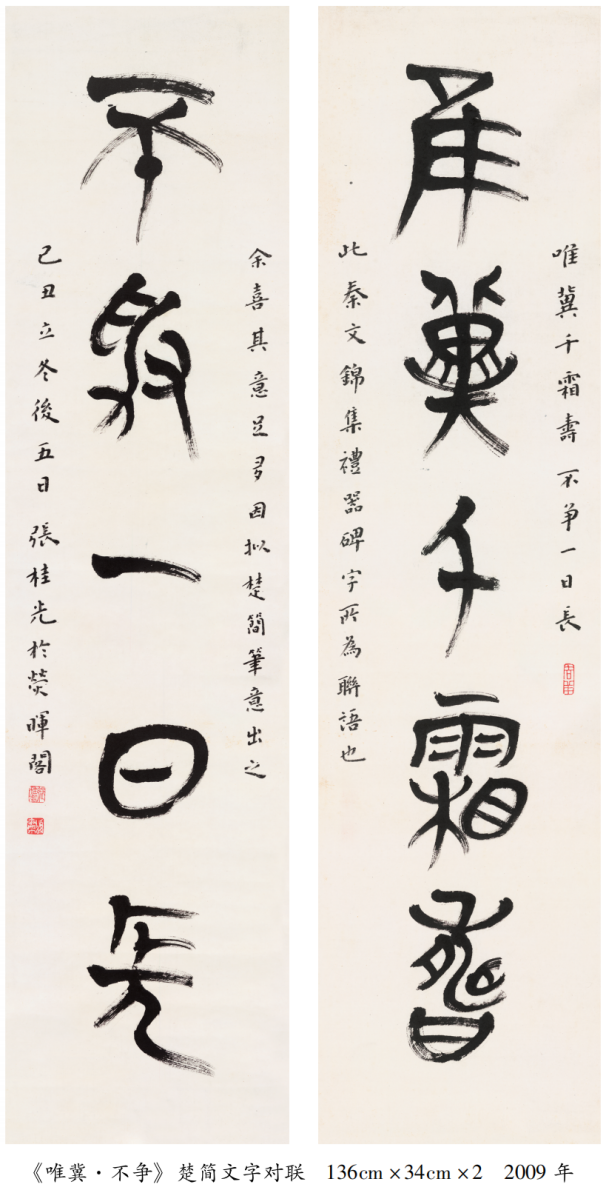 唯冀千霜壽不爭一日長
隹冀千霜壽
此秦文錦集禮器碑字所為聯語也
余喜其意足多因拟楚簡筆意出之
不爭一日長
己丑立冬後五日張桂光於熒暉閣
《唯冀·不争》楚简文字对联 136cm×34cm×2 2009 年